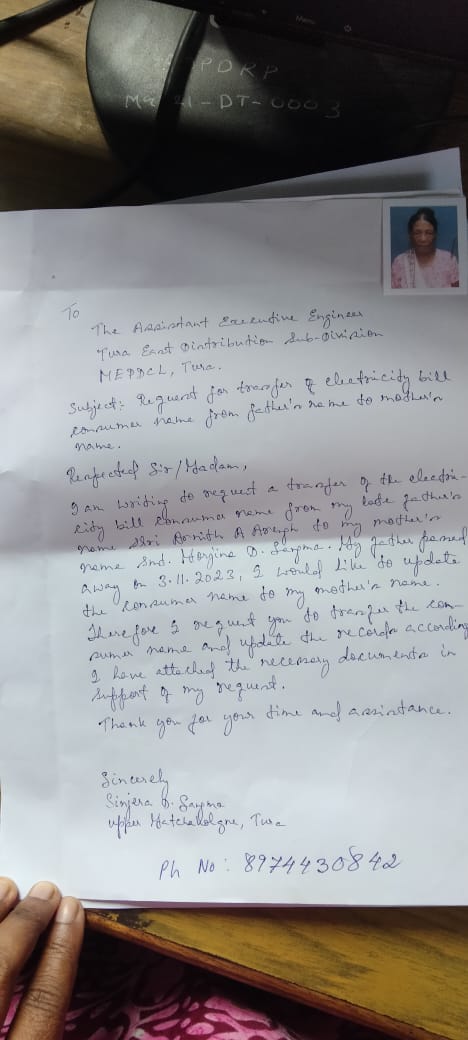 PDRP
-DT-0003
To
The Assistant Executive Engineer
Tura East Distribution Sub-Division
MEPDCL, Tura.
Subject: Request for transfer of electricity bill
consumer name from father's name to mother's
name.
Respected Sir/Madam,
I am writing to request a transfer of the electri-
city bill consumer name from my late father's
name Shri A to my mother's
name Smt. D. Sangma. My father passed
away on 3.11.2023, I would like to update
the consumer name to my mother's name.
Therefore I request you to transfer the con-
sumer name and update the records according
I have attached the necessary documents in
support of my request.
Thank you for your time and assistance.
Sincerely
Sinjera D. Sangma
upper Tura
Ph No: 8974430842